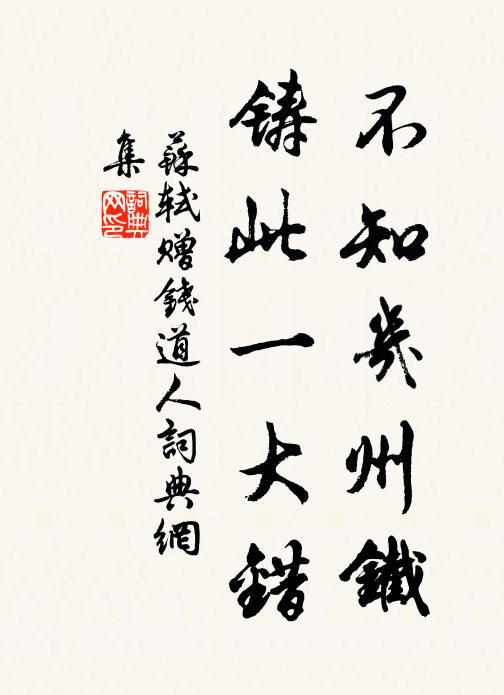 不知幾州鐵
鑄此一大錯
蘇軾贈錢道人詞典網
集
詞典
网印